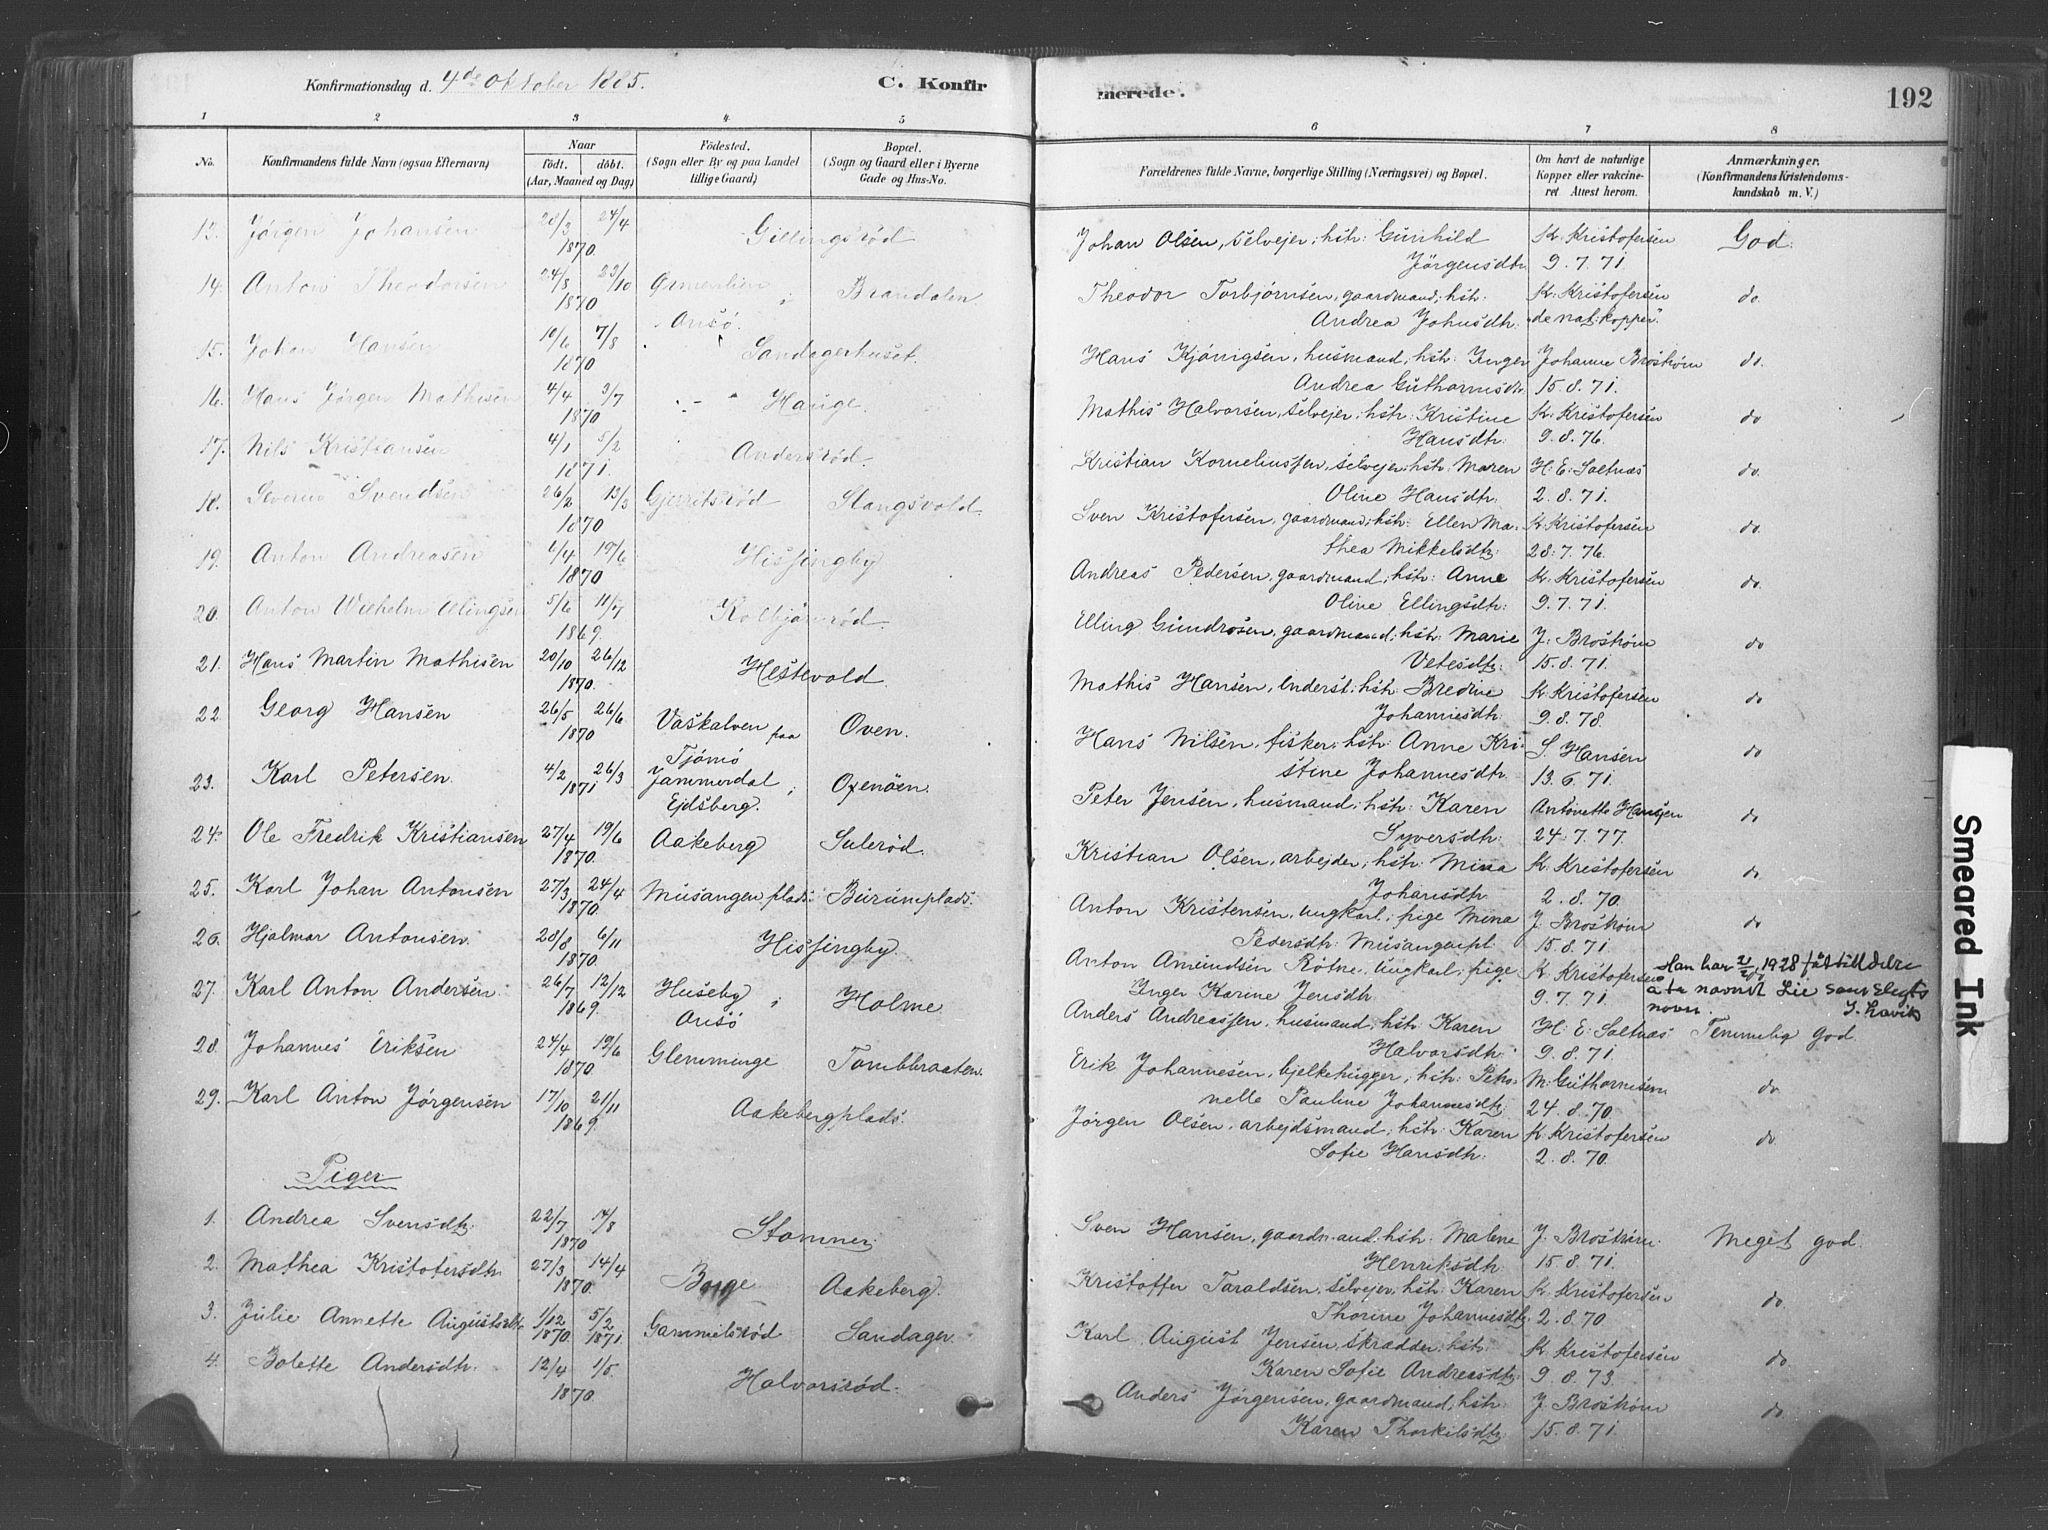 Konfirmationsdag d. 4de Oktober 1885.
C. Konfir
merede.
192
1 2 3 4 5 6 7 8
No.
Konfirmandens fulde Navn (ogsaa Efternavn)
Naar
født. døbt.
(Aar, Maaned og Dag)
Fødested.
(Sogn eller By og paa Landet
tillige Gaard)
Bopæl.
(Sogn og Gaard eller i Byerne
Gade og Hus-No.
Forældrenes fulde Navne, borgerlige Stilling (Næringsvei) og Bopæl.
Om havt de naturlige
Kopper eller vakcine-
ret Attest herom.
Anmærkninger.
(Konfirmandens Kristendoms-
kundskab m. V.)
13. Jørgen Johansen 28/3 24/4 Gillingsrød Johan Olsen, selvejer; hstr: Gunhild K. Kristofersen God.
1870 Jørgensdtr 9.7.71.
14. Anton Theodorsen 24/8 23/10 i Brandalen Theodor Torbjørnsen, gaardmand; hstr: K. Kristofersen do.
1870 Onsø. Andrea Johnsdtr. "de nat: kopper".
15. Johan Hansen 10/6 7/8 Sandagerhuset. Hans Kjønigsen, husmand, hstr: Inger Johanne Brostrøm do.
1870 Andrea Guthormsdtr 15.8.71.
16. Hans Jørgen Mathisen 4/4 3/7 Hauge. Mathis Halvorsen, selvejer; hstr: Kristine K. Kristofersen do
1870 Hansdtr: 9.8.76.
17. Nils Kristiansen 4/1 5/2 Andersrød. Kristian Kornelinssen, selvejer; hstr: Maren H. E. Saltnæs do.
1871. Oline Hansdtr: 2.8.71.
18. Severin Svendsen 26/2 13/3 Gjerritsrød Slangsvold. Sven Kristofersen, gaardmand; hstr: Ellen Ma- K. Kristofersen do.
1870 thea Mikkelsdtr: 28.7.76.
19. Anton Andreasen 6/4 19/6 Hissingby Andreas Pedersen, gaardmand; hstr: Anne K. Kristofersen do.
1870 Oline Ellingsdtr: 9.7.71.
20. Anton Wilhelm Ellingsen 5/6 11/7 Kolbjørnrød. Elling Gundrosen, gaardmand; hstr: Marie J. Brostrøm do
1869. Vetesdtr: 15.8.71.
21. Hans Martin Mathisen 20/10 26/12 Hestevold. Mathis Hansen, inderst; hstr: Bredine K. Kristofersen do
1870. Johannesdtr: 9.8.78.
22. Georg Hansen 26/5 26/6 Vaskalven paa Oven. Hans Nilsen, fisker; hstr: Anne Kri- S. Hansen do
1870 Tjømø stine Johannesdtr: 13.6.71.
23. Karl Petersen. 4/2 26/3 Jammerdal i Oxenøen. Peter Jensen, husmand; hstr: Karen Antonette Hansen do
1871 Ejdsberg. Syversdtr: 24.7.77.
24. Ole Fredrik Kristiansen 27/4 19/6 Aakeberg Sulerød. Kristian Olsen, arbejder; hstr: Mina K. Kristofersen do
1870. Johansdtr: 2.8.70.
25. Karl Johan Antonsen 27/3 24/4 Musangen plads. Burumplads. Anton Kristensen, ungkarl; pige Mina J. Brostrøm do
1870. Pedersdtr: Musangenpl. 15.8.71.
26. Hjalmar Antonsen. 28/8 6/11 Hissingby. Anton Amundsen Røtne, ungkarl; pige K. Kristofersen Han har 2/2 1928 fåt tilldelse
1870. Inger Karine Jensdtr. 9.7.71. å ta navnet Lie som slegts
navn. J. Lavik
27. Karl Anton Andersen 26/7 12/12 Huseby i Holme Anders Andreassen, husmand; hstr: Karen H. E. Saltnæs Temmelig god
1869. Onsø Halvorsdtr: 9.8.71.
28. Johannes Eriksen 24/4 19/6 Glemminge Tombbraaten. Erik Johannesen, bjelkehugger; hstr: Petro- M. Guthormsen do
1870 nelle Pauline Johannesdtr: 24.8.70
29. Karl Anton Jørgensen 17/10 21/11 Aakebergplads. Jørgen Olsen, arbejdsmand; hstr: Karen K. Kristofersen do
1869. Sofie Hansdtr: 2.8.70.
Piger
1. Andrea Svensdtr. 22/7 14/8 Stomner. Sven Hansen, gaardmand; hstr: Malene J. Brostrøm. Meget god.
1870 Henriksdtr 15.8.71.
2. Mathea Kristofersdtr. 27/3 14/4 Aakeberg. Kristoffer Taraldsen, selvejer; hstr: Karen K. Kristofersen do.
1870. Thorine Johannesdtr 2.8.70
3. Julie Annette Augustsdtr 1/12 5/2 Gammelsrød Sandager Karl August Jensen, skrædder; hstr: K. Kristofersen do
1870. 1871. Karen Sofie Andreasdtr: 9.8.73.
4. Bolette Andersdtr. 12/4 1/5 Halvorsrød. Anders Jørgensen, gaardmand, hstr: J. Brostrøm do
1870. Karen Thorkilsdtr: 15.8.71.
Smeared Ink